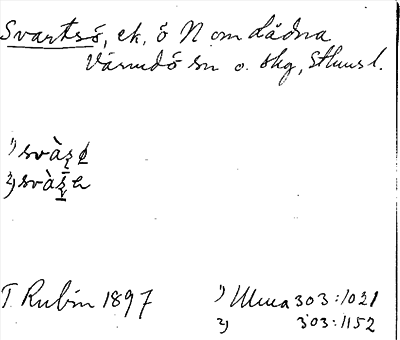 Svartsö, ek. ö N om Lådna
Värmdö sn o. skg, Sthms l.
1) svàʂ ø
2) svàʂ e
T. Rubin 1897
1) Muua 303:1021
2) 303:1152